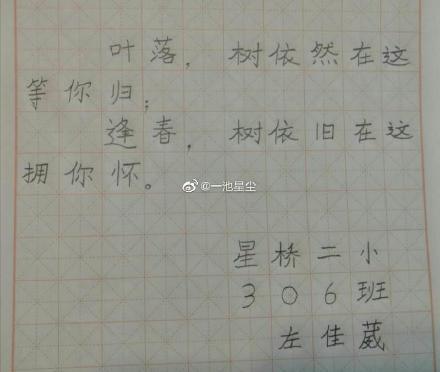 叶落，树依然在这
等你归；
逢春，树依旧在这
拥你怀。
@一池星尘
星桥二小
306班
左佳葳